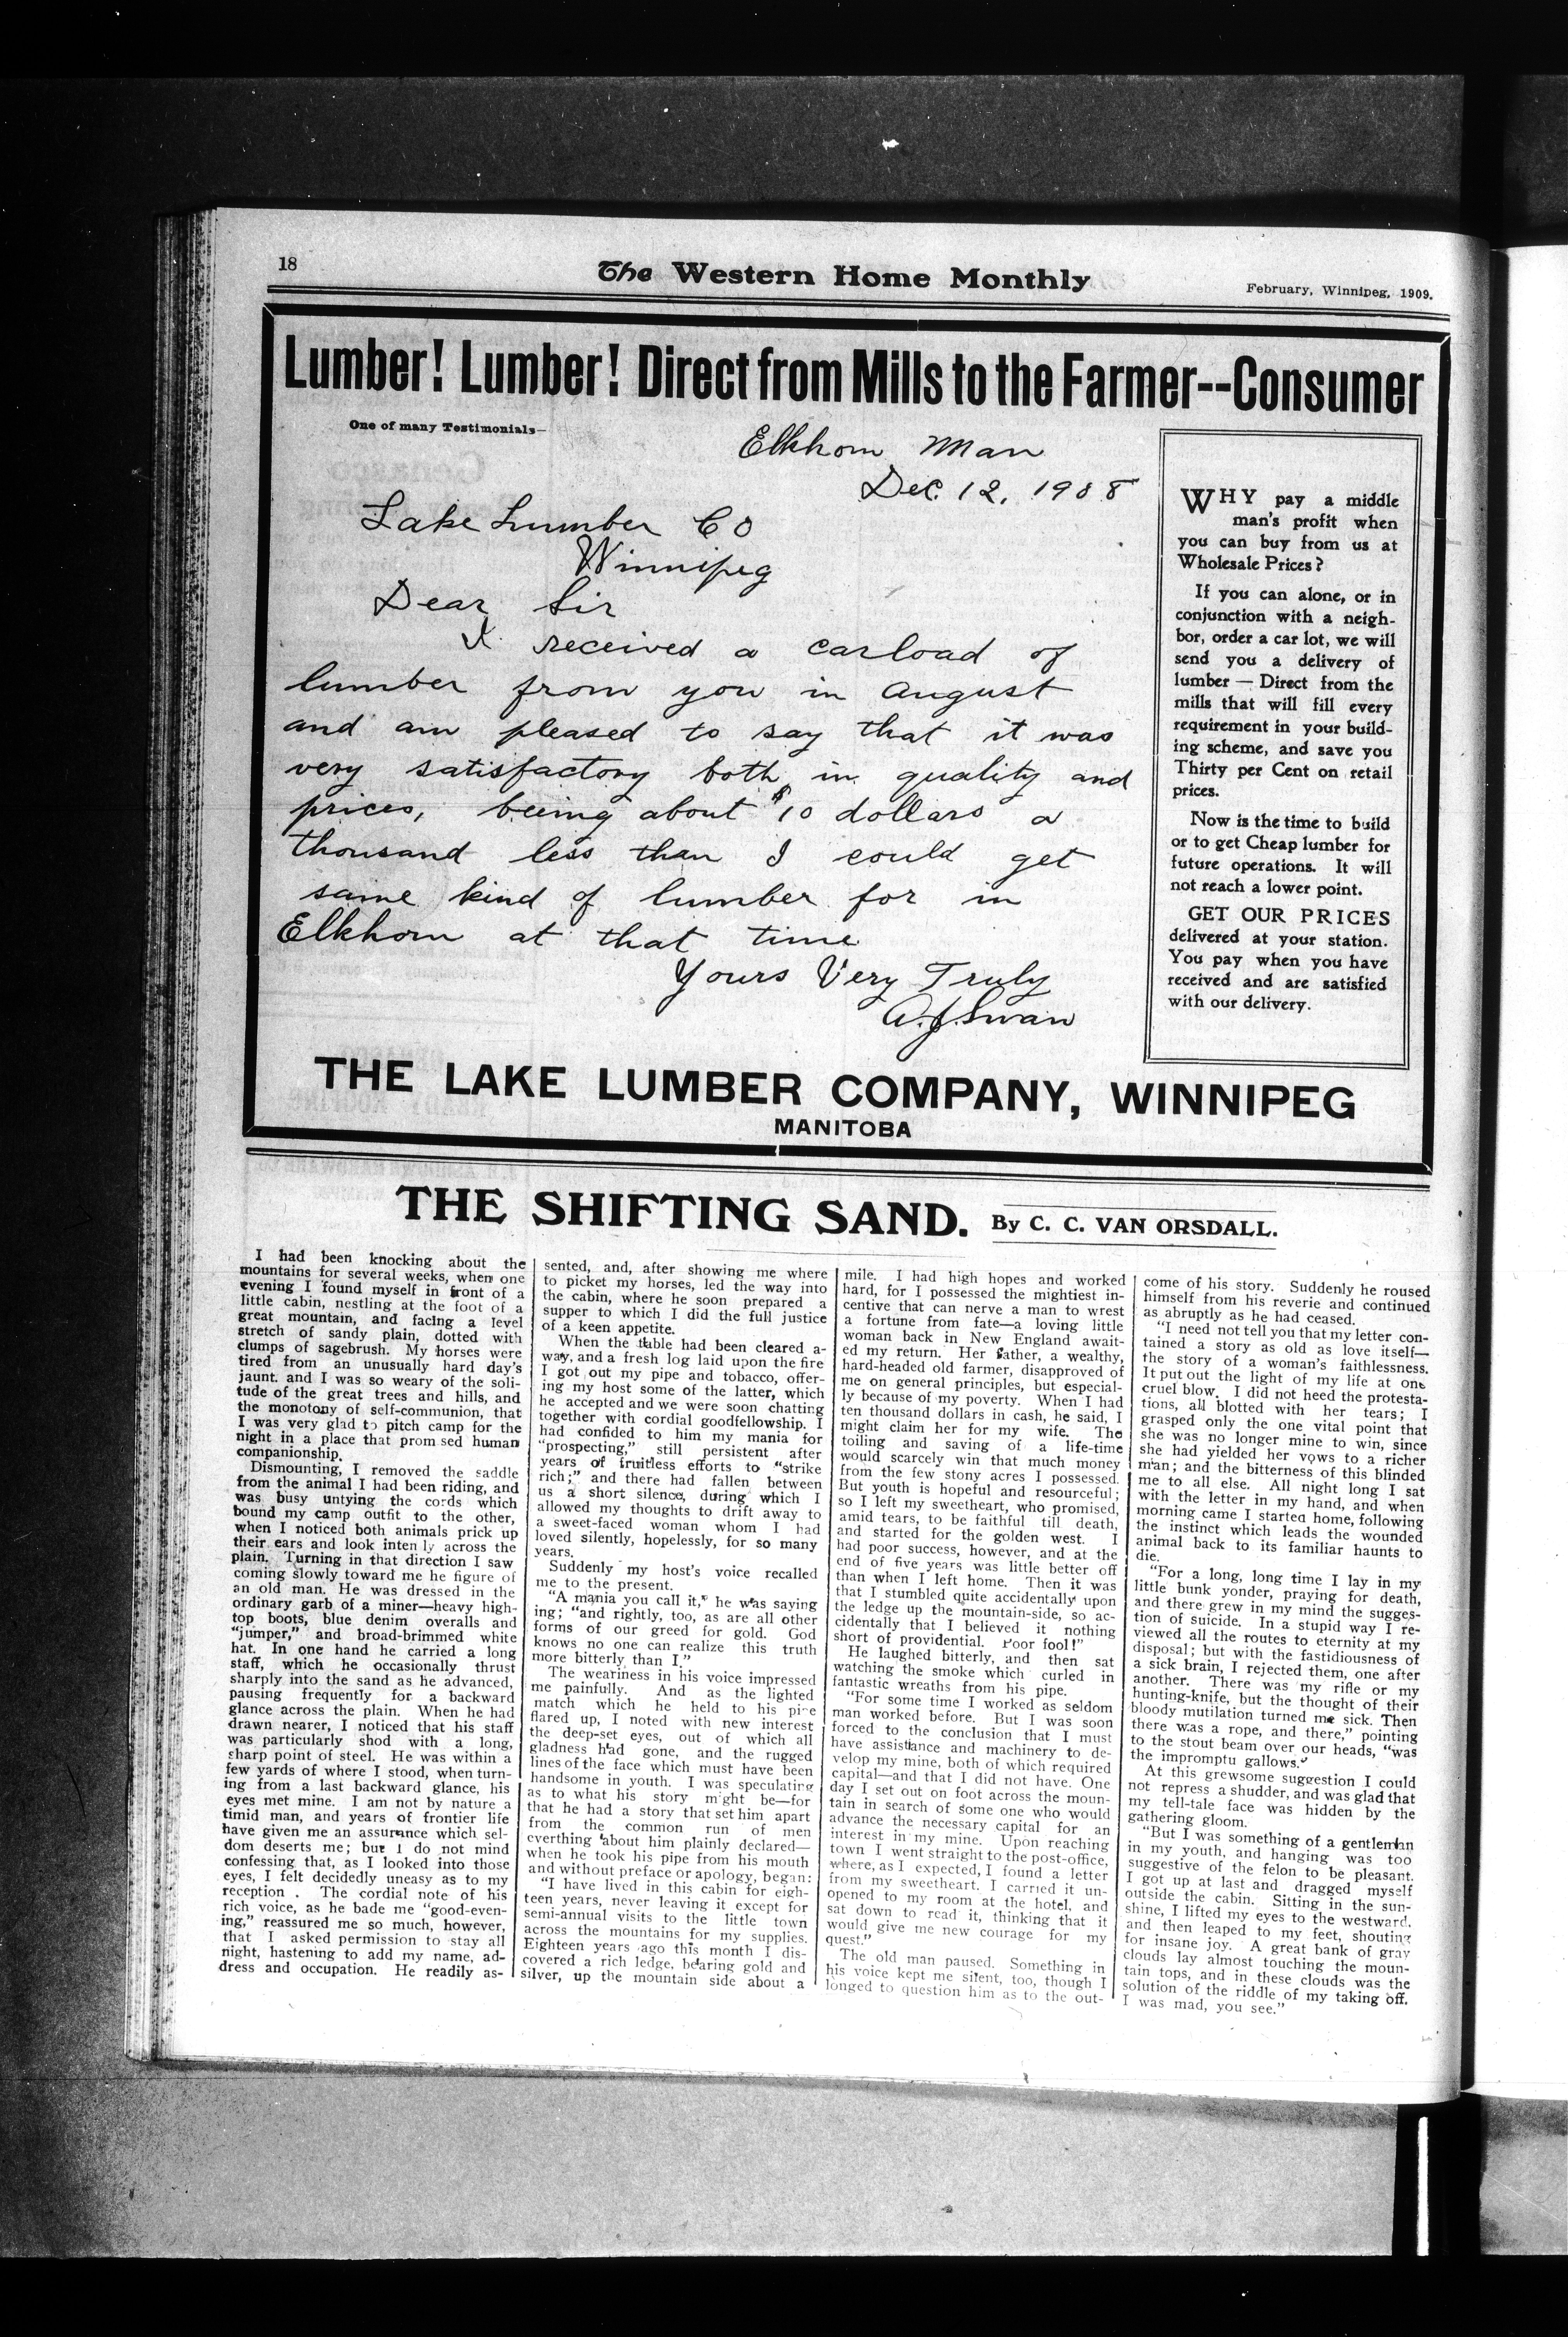 18
The Western Home Monthly
February, Winnipeg, 1909.
Lumber! Lumber! Direct from Mills to the Farmer--Consumer
One of many Testimonials—
Elkhorn Man
Dec. 12, 1908
Lake Lumber Co
Winnipeg
Dear Sir
I received a carload of
lumber from you in August
and am pleased to say that it was
very satisfactory both in quality and
prices, being about $10 dollars a
thousand less than I could get
same kind of lumber for in
Elkhorn at that time
Yours Very Truly
A.J. Swan
WHY pay a middle
man's profit when
you can buy from us at
Wholesale Prices?
If you can alone, or in
conjunction with a neigh-
bor, order a car lot, we will
send you a delivery of
lumber — Direct from the
mills that will fill every
requirement in your build-
ing scheme, and save you
Thirty per Cent on retail
prices.
Now is the time to build
or to get Cheap lumber for
future operations. It will
not reach a lower point.
GET OUR PRICES
delivered at your station.
You pay when you have
received and are satisfied
with our delivery.
THE LAKE LUMBER COMPANY, WINNIPEG
MANITOBA
THE SHIFTING SAND. By C. C. VAN ORSDALL.
I had been knocking about the
mountains for several weeks, when one
evening I found myself in front of a
little cabin, nestling at the foot of a
great mountain, and facing a level
stretch of sandy plain, dotted with
clumps of sagebrush. My horses were
tired from an unusually hard day's
jaunt. and I was so weary of the soli-
tude of the great trees and hills, and
the monotony of self-communion, that
I was very glad to pitch camp for the
night in a place that prom sed human
companionship.
Dismounting, I removed the saddle
from the animal I had been riding, and
was busy untying the cords which
bound my camp outfit to the other,
when I noticed both animals prick up
their ears and look inten ly across the
plain. Turning in that direction I saw
coming slowly toward me he figure of
an old man. He was dressed in the
ordinary garb of a miner—heavy high-
top boots, blue denim overalls and
"jumper," and broad-brimmed white
hat. In one hand he carried a long
staff, which he occasionally thrust
sharply into the sand as he advanced,
pausing frequently for a backward
glance across the plain. When he had
drawn nearer, I noticed that his staff
was particularly shod with a long,
sharp point of steel. He was within a
few yards of where I stood, when turn-
ing from a last backward glance, his
eyes met mine. I am not by nature a
timid man, and years of frontier life
have given me an assurance which sel-
dom deserts me; but I do not mind
confessing that, as I looked into those
eyes, I felt decidedly uneasy as to my
reception . The cordial note of his
rich voice, as he bade me "good-even-
ing," reassured me so much, however,
that I asked permission to stay all
night, hastening to add my name, ad-
dress and occupation. He readily as-
sented, and, after showing me where
to picket my horses, led the way into
the cabin, where he soon prepared a
supper to which I did the full justice
of a keen appetite.
When the table had been cleared a-
way, and a fresh log laid upon the fire
I got out my pipe and tobacco, offer-
ing my host some of the latter, which
he accepted and we were soon chatting
together with cordial goodfellowship. I
had confided to him my mania for
"prospecting," still persistent after
years of fruitless efforts to "strike
rich;" and there had fallen between
us a short silence, during which I
allowed my thoughts to drift away to
a sweet-faced woman whom I had
loved silently, hopelessly, for so many
years.
Suddenly my host's voice recalled
me to the present.
"A mania you call it," he was saying
ing; "and rightly, too, as are all other
forms of our greed for gold. God
knows no one can realize this truth
more bitterly than I."
The weariness in his voice impressed
me painfully. And as the lighted
match which he held to his pipe
flared up, I noted with new interest
the deep-set eyes, out of which all
gladness had gone, and the rugged
lines of the face which must have been
handsome in youth. I was speculating
as to what his story might be—for
that he had a story that set him apart
from the common run of men
everthing about him plainly declared—
when he took his pipe from his mouth
and without preface or apology, began:
"I have lived in this cabin for eigh-
teen years, never leaving it except for
semi-annual visits to the little town
across the mountains for my supplies.
Eighteen years ago this month I dis-
covered a rich ledge, bearing gold and
silver, up the mountain side about a
mile. I had high hopes and worked
hard, for I possessed the mightiest in-
centive that can nerve a man to wrest
a fortune from fate—a loving little
woman back in New England await-
ed my return. Her father, a wealthy,
hard-headed old farmer, disapproved of
me on general principles, but especial-
ly because of my poverty. When I had
ten thousand dollars in cash, he said, I
might claim her for my wife. The
toiling and saving of a life-time
would scarcely win that much money
from the few stony acres I possessed.
But youth is hopeful and resourceful;
so I left my sweetheart, who promised,
amid tears, to be faithful till death,
and started for the golden west. I
had poor success, however, and at the
end of five years was little better off
than when I left home. Then it was
that I stumbled quite accidentally upon
the ledge up the mountain-side, so ac-
cidentally that I believed it nothing
short of providential. Poor fool!"
He laughed bitterly, and then sat
watching the smoke which curled in
fantastic wreaths from his pipe.
"For some time I worked as seldom
man worked before. But I was soon
forced to the conclusion that I must
have assistance and machinery to de-
velop my mine, both of which required
capital—and that I did not have. One
day I set out on foot across the moun-
tain in search of some one who would
advance the necessary capital for an
interest in my mine. Upon reaching
town I went straight to the post-office,
where, as I expected, I found a letter
from my sweetheart. I carried it un-
opened to my room at the hotel, and
sat down to read it, thinking that it
would give me new courage for my
quest."
The old man paused. Something in
his voice kept me silent, too, though I
longed to question him as to the out-
come of his story. Suddenly he roused
himself from his reverie and continued
as abruptly as he had ceased.
"I need not tell you that my letter con-
tained a story as old as love itself—
the story of a woman's faithlessness.
It put out the light of my life at one
cruel blow. I did not heed the protesta-
tions, all blotted with her tears; I
grasped only the one vital point that
she was no longer mine to win, since
she had yielded her vows to a richer
man; and the bitterness of this blinded
me to all else. All night long I sat
with the letter in my hand, and when
morning came I started home, following
the instinct which leads the wounded
animal back to its familiar haunts to
die.
"For a long, long time I lay in my
little bunk yonder, praying for death,
and there grew in my mind the sugges-
tion of suicide. In a stupid way I re-
viewed all the routes to eternity at my
disposal; but with the fastidiousness of
a sick brain, I rejected them, one after
another. There was my rifle or my
hunting-knife, but the thought of their
bloody mutilation turned me sick. Then
there was a rope, and there," pointing
to the stout beam over our heads, "was
the impromptu gallows."
At this grewsome suggestion I could
not repress a shudder, and was glad that
my tell-tale face was hidden by the
gathering gloom.
"But I was something of a gentleman
in my youth, and hanging was too
suggestive of the felon to be pleasant.
I got up at last and dragged myself
outside the cabin. Sitting in the sun-
shine, I lifted my eyes to the westward.
and then leaped to my feet, shouting
for insane joy. A great bank of gray
clouds lay almost touching the moun-
tain tops, and in these clouds was the
solution of the riddle of my taking off.
I was mad, you see."